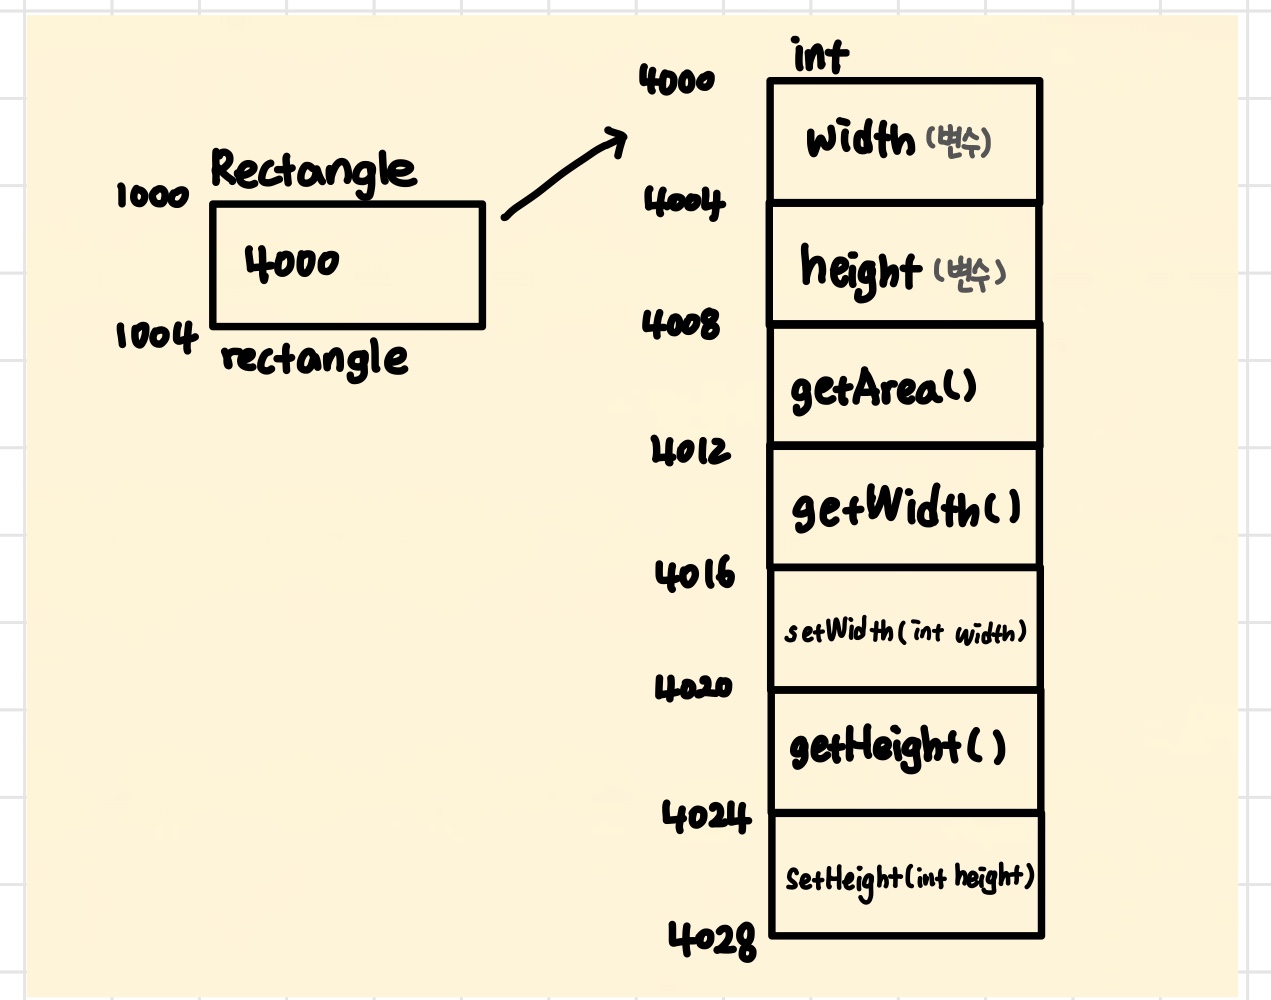 Rectangle
1000
4000
1004
rectangle
int
4000
width (변수)
4004
height (변수)
4008
getArea()
4012
getWidth()
4016
setWidth(int width)
4020
getHeight()
4024
setHeight(int height)
4028